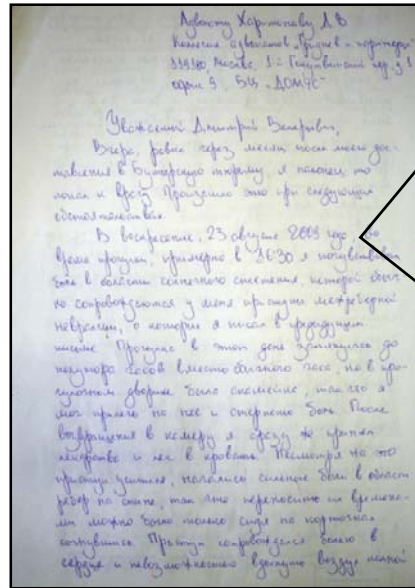 Адвокату Харитонову Д В
Коллегия адвокатов „Груднев и партнеры"
119180, Москва, 1-й Голутвинский пер. д. 1
офис 9, БЦ „ДОМУС"
Уважаемый Дмитрий Валерьевич,
Вчера, ровно через месяц после моего дос-
тавления в Бутырскую тюрьму, я наконец-то
попал к врачу. Произошло это при следующих
обстоятельствах.
В воскресение, 23 августа 2009 года, во
время прогулки, примерно в 16:30 я почувствовал
боль в области солнечного сплетения, которой обыч-
но сопровождаются у меня приступы межреберной
невралгии, о которых я писал в предыдущем
письме. Прогулка в этот день затянулась до
полутора часов вместо обычного часа, но в про-
гулочном дворике была скамейка, так что я
мог прилечь на нее и стерпеть боль. После
возвращения в камеру я сразу же принял
лекарство и лег в кровать. Несмотря на это
приступ усилился, начались сильные боли в области
ребер на спине, так что переносить их времена-
ми можно было только сидя на корточках
согнувшись. Приступ сопровождался болью в
сердце и невозможностью вдохнуть воздух полной